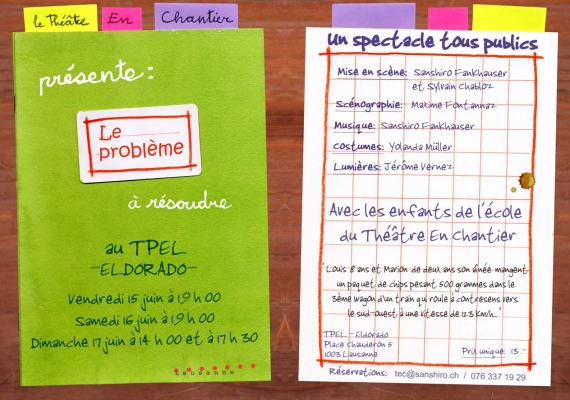 le Théâtre En Chantier
présente:
Le
problème
à résoudre
au TPEL
-ELDORADO-
Vendredi 15 juin à 19 h 00
Samedi 16 juin à 19 h 00
Dimanche 17 juin à 14 h 00 et à 17 h 30
Lausanne
Un spectacle tous publics
Mise en scène: Sanshiro Fankhauser
et Sylvain Chabloz
Scénographie: Maxime Fontannaz
Musique: Sanshiro Fankhauser
Costumes: Yolanda Müller
Lumières: Jérôme Vernez
Avec les enfants de l'école
du Théâtre En Chantier
"Louis 8 ans et Marion de deux ans son aînée mangent
un paquet de chips pesant 500 grammes dans le
3ème wagon d'un train qui roule à contresens vers
le sud-ouest à une vitesse de 12.3 km/h..."
TPEL - Eldorado
Place Chauderon 5
1003 Lausanne
Prix unique: 13.-
Réservations: tec@sanshiro.ch / 076 337 19 29